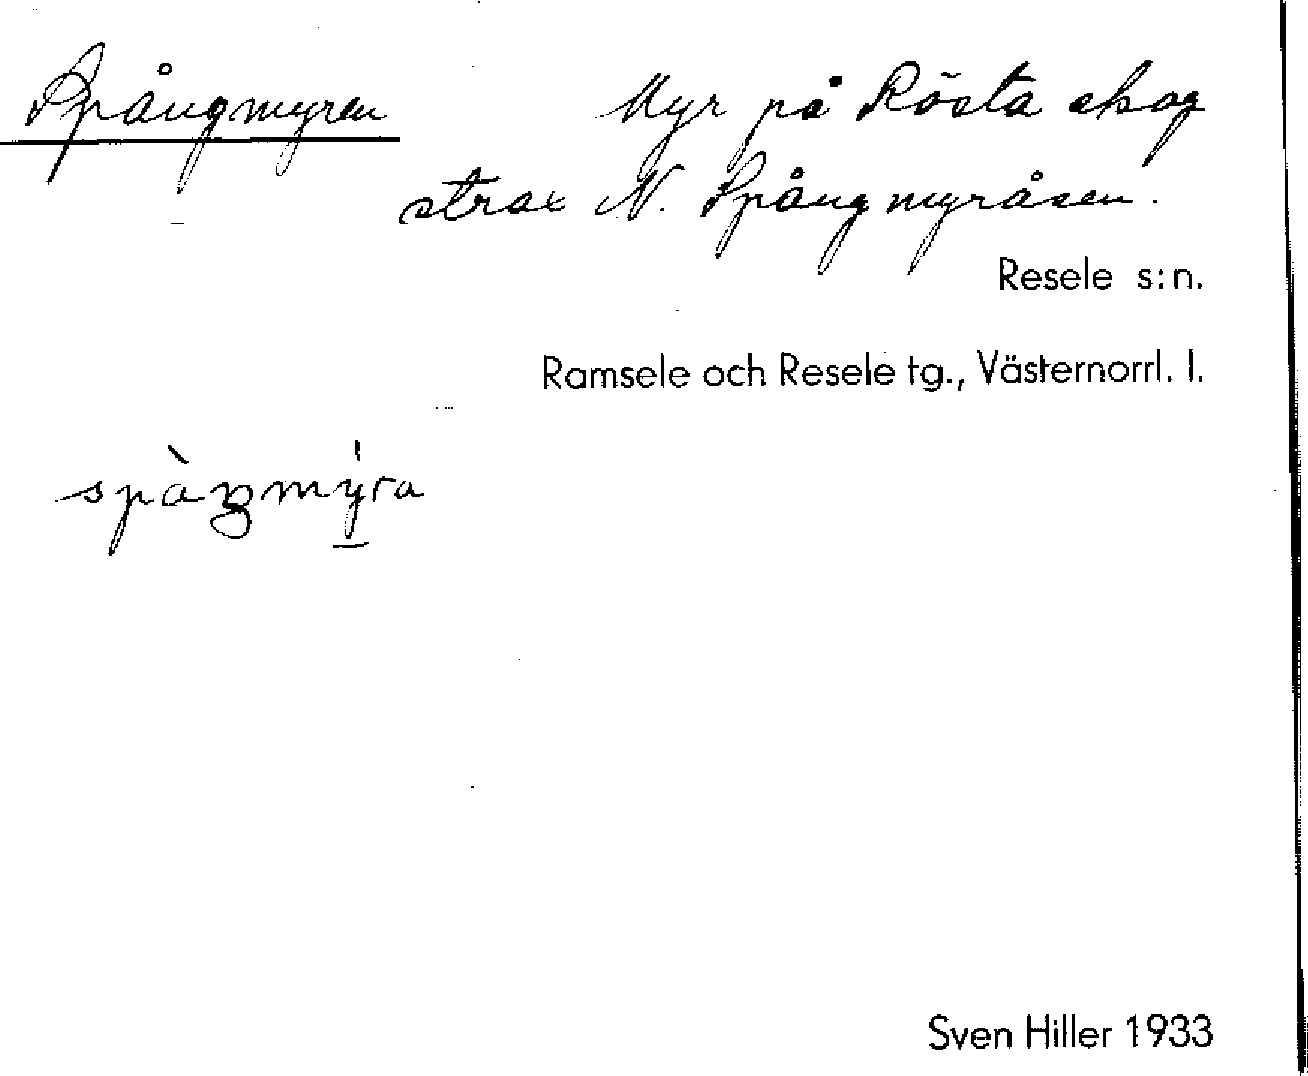 Spångmyren
Myr på Rösta skog
strax N. Spångmyråsen.
Resele s:n.
Ramsele och Resele tg., Västernorrl. l.
Sven Hiller 1933